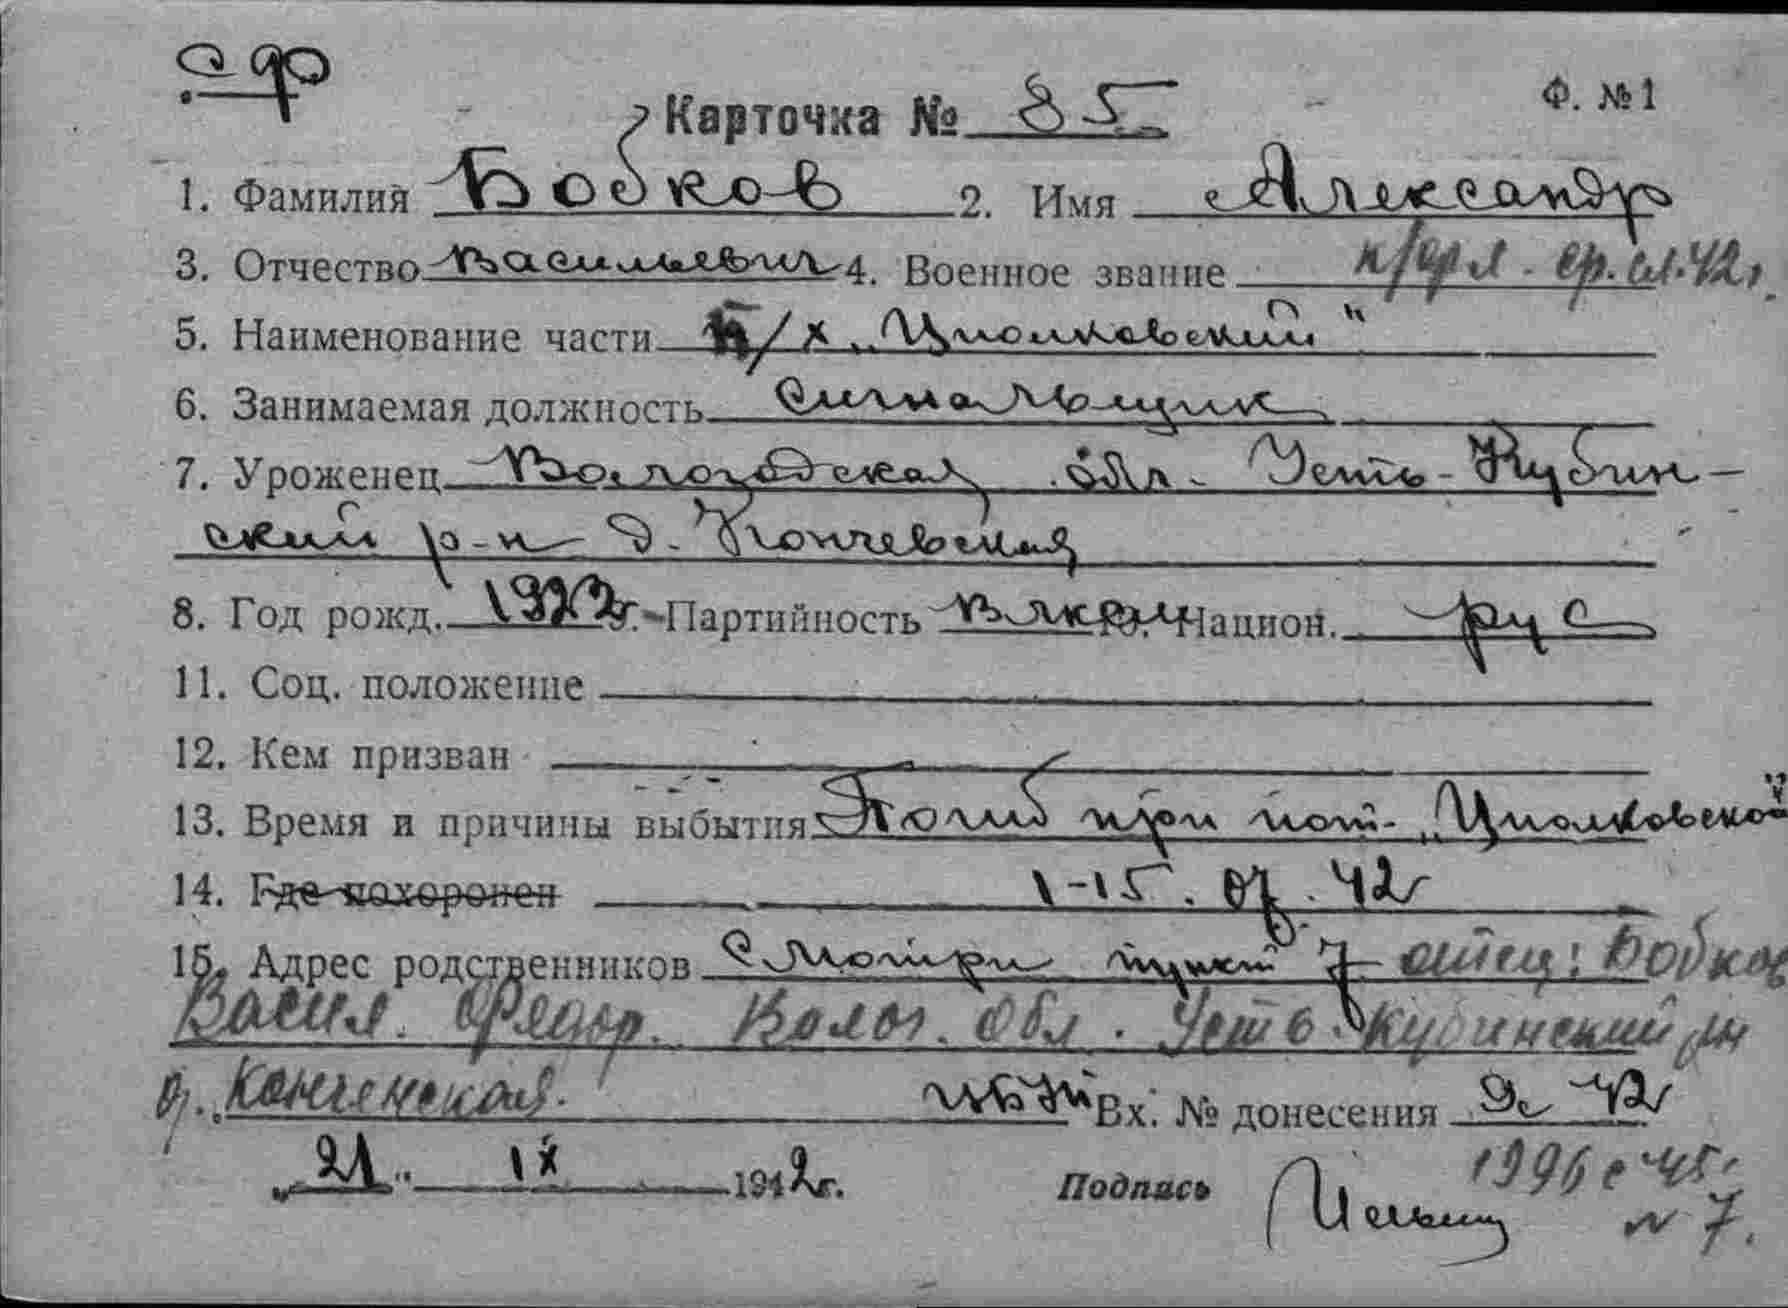 Ф. №1
Карточка № 85
1. Фамилия Бобков 2. Имя Александр
3. Отчество Васильевич 4. Военное звание
5. Наименование части п/х „Циолковский"
6. Занимаемая должность Сигнальщик
7. Уроженец Вологодская обл. Усть-Кубин-
ский р-н д.
8. Год рожд. г. Партийность Национ. рус
11. Соц. положение
12. Кем призван
13. Время и причины выбытия Погиб при пот. „Циолковский"
14. Где похоронен 1-15.07.42г
15. Адрес родственников Смотри пункт 7 отец: Бобков
Васил. Волог. обл. Усть-Кубинский р-н
д. Вх. № донесения
„21" IX 1942г. Подпись 1996 с 45г.
N 7.